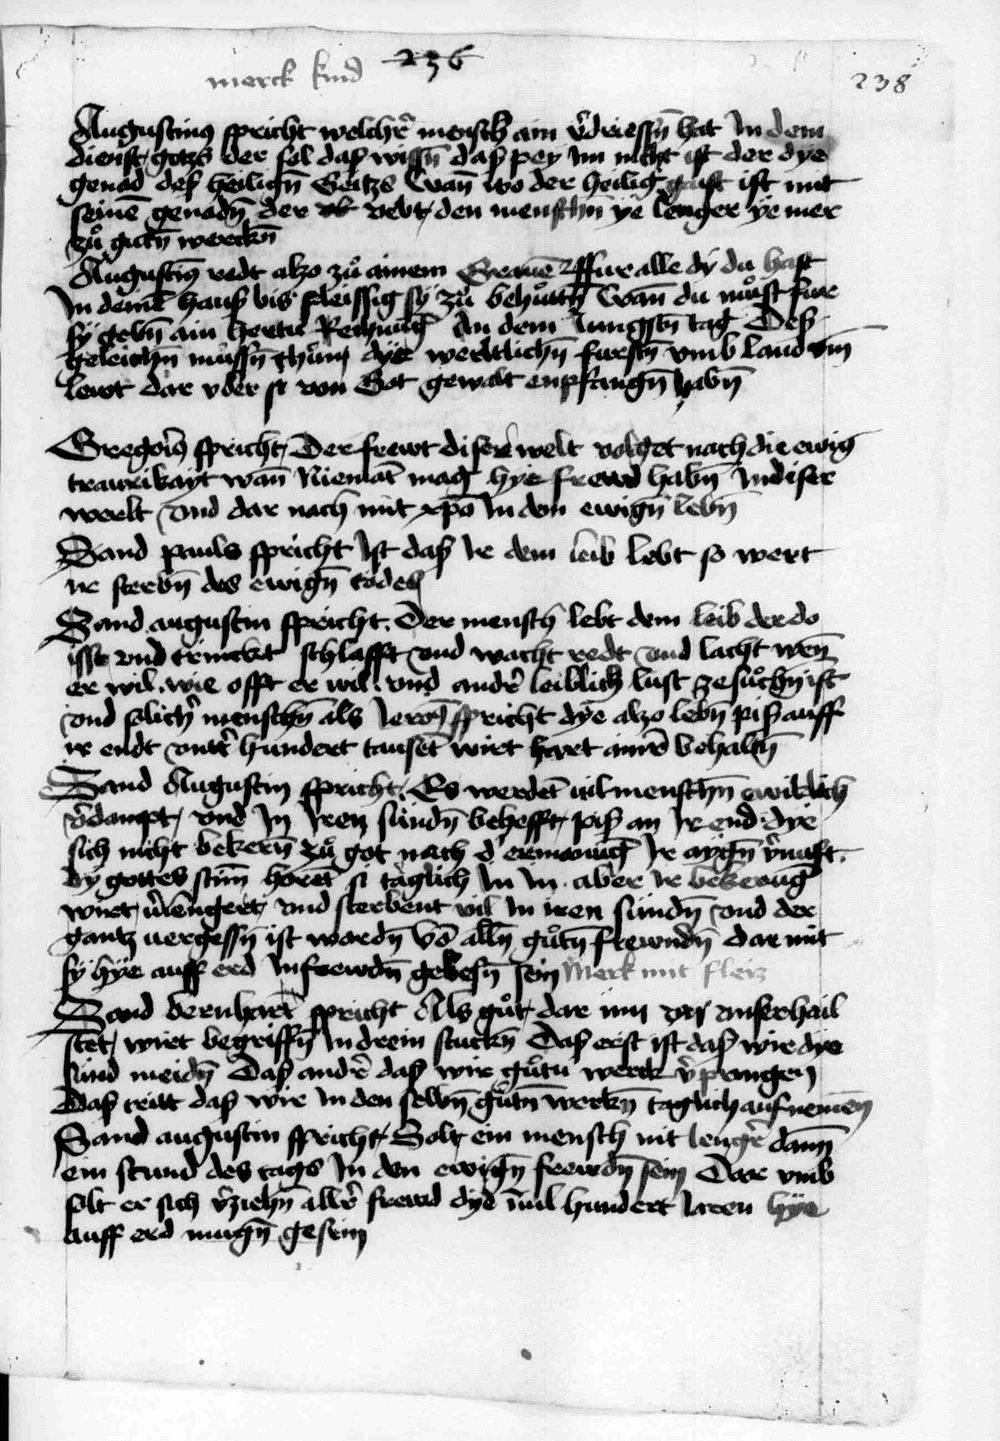 236
merck kind
238
Augustinus spricht welcher̄ mensch ain v̄driessn̄ hat In dem
dienst gotzs der sol daß wissn̄ daß pey Im nicht ist der dye
genad deß heilign̄ Geitzs Wan̄ wo der heilig gaist ist mit
seinē genadn̄ der vbt den menschn̄ ye lenger ye mer
zů gutn̄ werckn̄
Augustin9 redt alzo zů ainem Grauē fur alle dy du hast
In deinē hauß biß fleissig sy zů behůttn̄ Wan̄ du můst fur
sy gebn̄ ain hertu Rechnūg An dem Iungstn̄ tag Deß
geleichn̄ můssn̄ thůn dye werltlichn̄ furstn̄ vmb land vn̄
lewt dar vber si von Got gewalt enpfangn̄ habn̄
Gregori9 spricht Der frewt diser welt volget nach die ewig
traurikayt wan̄ Niemāt mag hye frewd habn̄ In diser
werlt vnd dar nach mit xpo In dem ewign̄ lebn̄
Sand pauls spricht Ist daß Ir dem leib lebt so wert
ir sterbn̄ des ewign̄ todes
Sand augustin spricht. Der mensch lebt dem leib der do
isst vnd trinckt schlafft vnd wacht redt vnd lacht wen̄
er wil. wie offt er wil. vnd andr̄ leiblich lust zesůchn̄ ist
vnd solich̄ menschn̄ als Ieron9 spricht dye alzo lebn̄ piß auff
ir endt vntr̄ hundert tausēt wirt hart ainr̄ behaltn̄
Sand Augustin spricht. Es werdēt vil menschn̄ ewiklich
v̄dampt vnd In Iren sündn̄ behefft piß an Ir end dye
sich nicht bekern̄ zů got nach d' ermanūg Ir aygn̄ v̄nuft.
dy gottes stim̄ hörēt si täglich In In. aber Ir bekerūg
wirt v̄lengert vnd sterbent vil In iren sündn̄ vnd der
gantz vergessn̄ ist wordn̄ vō alln̄ gůtn̄ frewndn̄ dar mit
sy hye auff erd In frewdn̄ gebesn̄ sein Merk mit fleiz
Sand bernhart spricht Als gůt dar inn vnser hail
stet wirt begriffn̄ In drein stuckn̄ Daß erst ist daß wir dye
sünd meidn̄ Daß andr̄ daß wir gůtu werck v̄pringen
Daß tritt daß wir In den selbn̄ gůtn̄ werkn̄ taglich aufnemen
Sand augustin spricht Solt ein mensch nit lengr̄ dann
ein stund des tags In den ewign̄ frewdn̄ sein Dar vmb
solt er sich v̄ziehn̄ allr̄ frewd dye in vil hundert Iaren hye
auff erd mugn̄ gesein